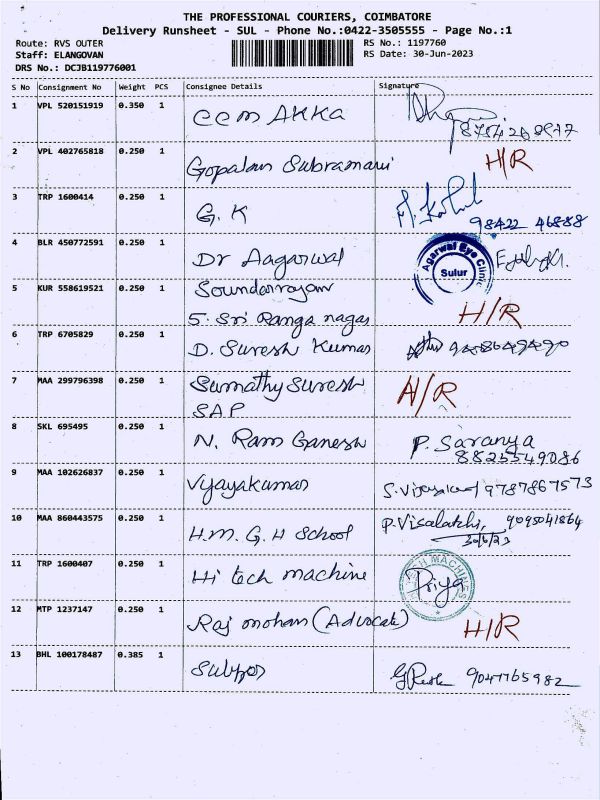 THE PROFESSIONAL COURIERS, COIMBATORE
Delivery Runsheet - SUL - Phone No.:0422-3505555 - Page No.:1
Route: RVS OUTER
RS No.: 1197760
Staff: ELANGOVAN
RS Date: 30-Jun-2023
DRS No.: DCJB119776001
S No Consignment No Weight PCS Consignee Details Signature
1 VPL 520151919 0.350 1 CEM AKKA
2 VPL 402765818 0.250 1 Gopalan Subramani H/R
3 TRP 1600414 0.250 1 G. K
98422 46888
4 BLR 450772591 0.250 1 Dr Aagarwal
Agarwal Eye Clinic
Sulur
5 KUR 558619521 0.250 1 Soundarrajan
5. Sri Ranga nagar H/R
6 TRP 6705829 0.250 1 D. Suresh Kumar
7 MAA 299796398 0.250 1 Sumathy Suresh H/R
SAP
8 SKL 695495 0.250 1 N. Ram Ganesh P. Saranya
8825549086
9 MAA 102626837 0.250 1 Vijayakumar 9787867573
10 MAA 860443575 0.250 1 H.M. G. H School P. Visalakshi, 9095041864
30/6/23
11 TRP 1600407 0.250 1 Hi tech machine Priya
12 MTP 1237147 0.250 1 Raj mohan (Advocate) H/R
13 BHL 100178487 0.385 1
9047765982